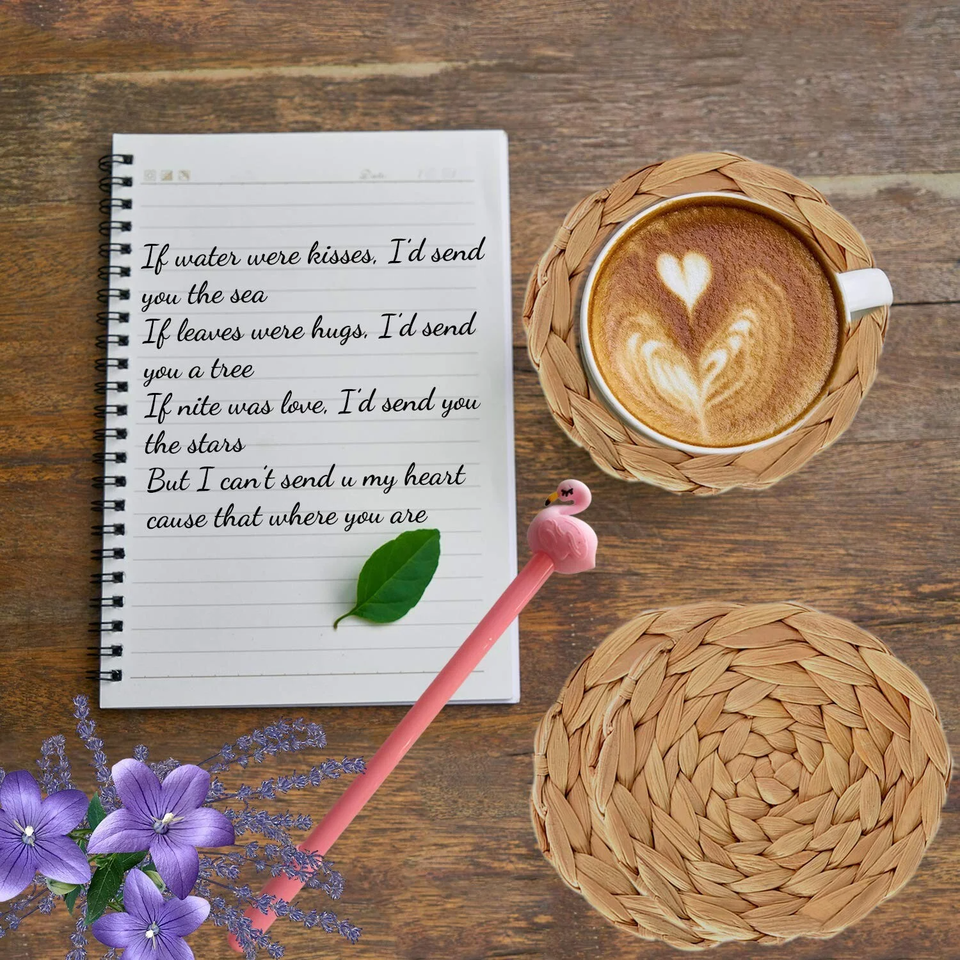 If water were kisses, I'd send
you the sea
If leaves were hugs, I'd send
you a tree
If nite was love, I'd send you
the stars
But I can't send u my heart
cause that where you are